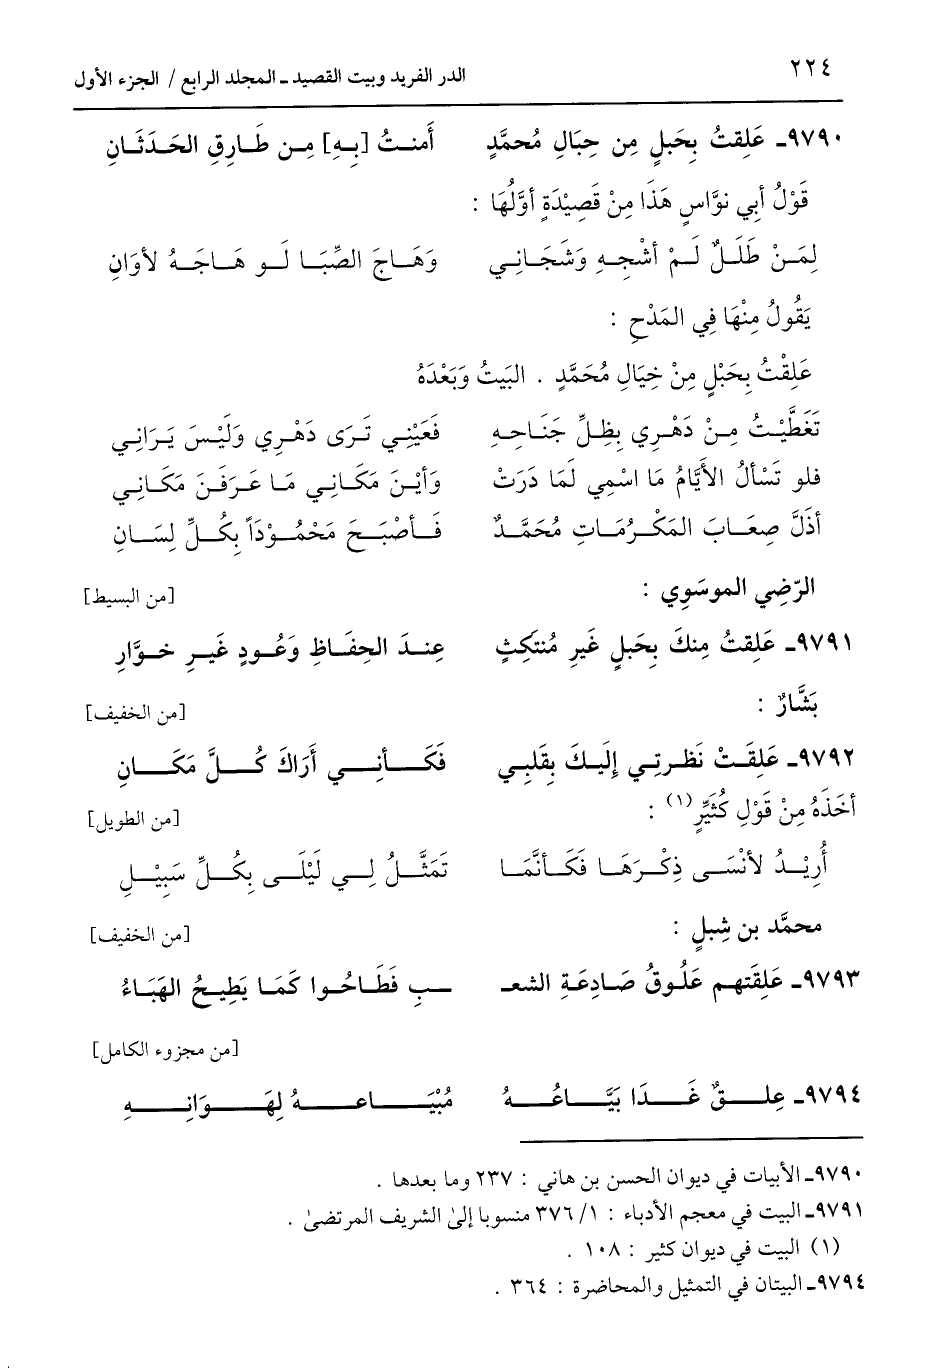 ٢٢٤
الدر الفريد وبيت القصيد ـ المجلد الرابع / الجزء الأول
٩٧٩٠ـ عَلِقتُ بِحَبلٍ مِن حِبَالِ مُحمَّدٍ أَمنتُ [بِهِ] مِن طَارِقِ الحَدَثَانِ
قَوْلُ أبِي نوَّاسٍ هَذَا مِنْ قَصِيْدَةٍ أوَّلُهَا :
لِمَنْ طَلَلٌ لَمْ أشْجِهِ وَشَجَانِي وَهَاجَ الصِّبَا لَو هَاجَهُ لأوَانِ
يَقُولُ مِنْهَا فِي المَدْحِ :
عَلِقْتُ بِحَبْلٍ مِنْ خِيَالِ مُحَمَّدٍ . البَيتُ وَبَعْدَهُ
تَغَطَّيْتُ مِنْ دَهْرِي بِظِلِّ جَنَاحِهِ فَعَيْنِي تَرَى دَهْرِي وَلَيْسَ يَرَانِي
فلو تَسْألُ الأيَّامُ مَا اسْمِي لَمَا دَرَتْ وَأيْنَ مَكَانِي مَا عَرَفنَ مَكَانِي
أذَلَّ صِعَابَ المَكْرُمَاتِ مُحَمَّدٌ فَأصْبَحَ مَحْمُوْدَاً بِكُلِّ لِسَانِ
الرّضِي الموسَوِي : [من البسيط]
٩٧٩١ـ عَلِقتُ مِنكَ بِحَبلٍ غَيرِ مُنتكِثٍ عِندَ الحِفَاظِ وَعُودٍ غَيرِ خوَّارِ
بَشَّارٌ : [من الخفيف]
٩٧٩٢ـ عَلِقَتْ نَظرتِي إِلَيكَ بِقَلبِي فَكَأنِي أَرَاكَ كُلَّ مَكَانِ
أخَذَهُ مِنْ قَوْلِ كُثَيِّرٍ(١) : [من الطويل]
أُرِيْدُ لأنْسَى ذِكْرَهَا فَكَأنَّمَا تَمَثَّلُ لِي لَيْلَى بِكُلِّ سَبِيْلِ
محمَّد بن شِبلٍ : [من الخفيف]
٩٧٩٣ـ عَلِقَتهم عَلُوقُ صَادِعَةِ الشعـ ـبِ فَطَاحُوا كَمَا يَطِيحُ الهَبَاءُ
[من مجزوء الكامل]
٩٧٩٤ـ عِلقٌ غَدَا بَيَّاعُهُ مُبْيَاعهُ لِهَوَانِهِ
٩٧٩٠ـ الأبيات في ديوان الحسن بن هاني : ٢٣٧ وما بعدها .
٩٧٩١ـ البيت في معجم الأدباء : ١/ ٣٧٦ منسوبا إلىٰ الشريف المرتضىٰ .
(١) البيت في ديوان كثير : ١٠٨ .
٩٧٩٤ـ البيتان في التمثيل والمحاضرة : ٣٦٤ .